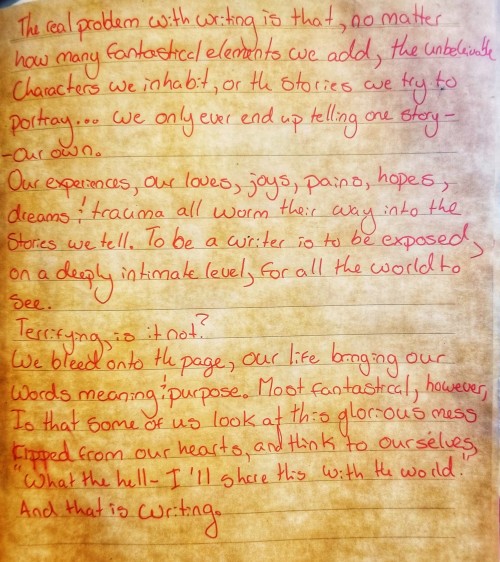 The real problem with writing is that, no matter
how many fantastical elements we add, the unbeleivable
Characters we inhabit, or the stories we try to
portray... we only ever end up telling one story-
-Our own.
Our experiences, our loves, joys, pains, hopes,
dreams & trauma all worm their way into the
Stories we tell. To be a writer is to be exposed,
on a deeply intimate level, for all the world to
see.
Terrifyng, is it not?
We bleed onto the page, our life bringing our
words meaning & purpose. Most fantastical, however,
Is that some of us look at this glorious mess
ripped from our hearts, and think to ourselves,
"What the hell- I'll share this with the world."
And that is writing.